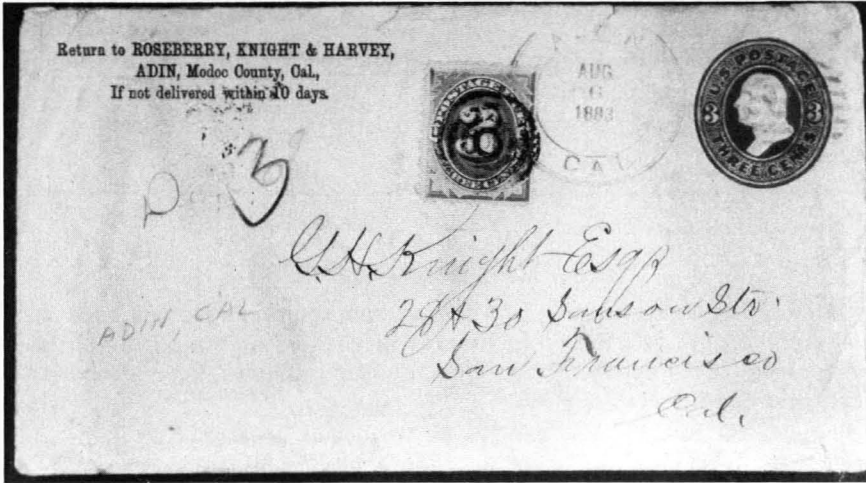 Return to ROSEBERRY, KNIGHT & HARVEY,
ADIN, Modoc County, Cal.,
If not delivered within 10 days.
AUG
6
1883
CAL
U.S. POSTAGE
3 3
THREE CENTS
POSTAGE
3
3
G. H. Knight Esqr
28 & 30 Sansom Str.
San Francisco
Cal.
ADIN, CAL